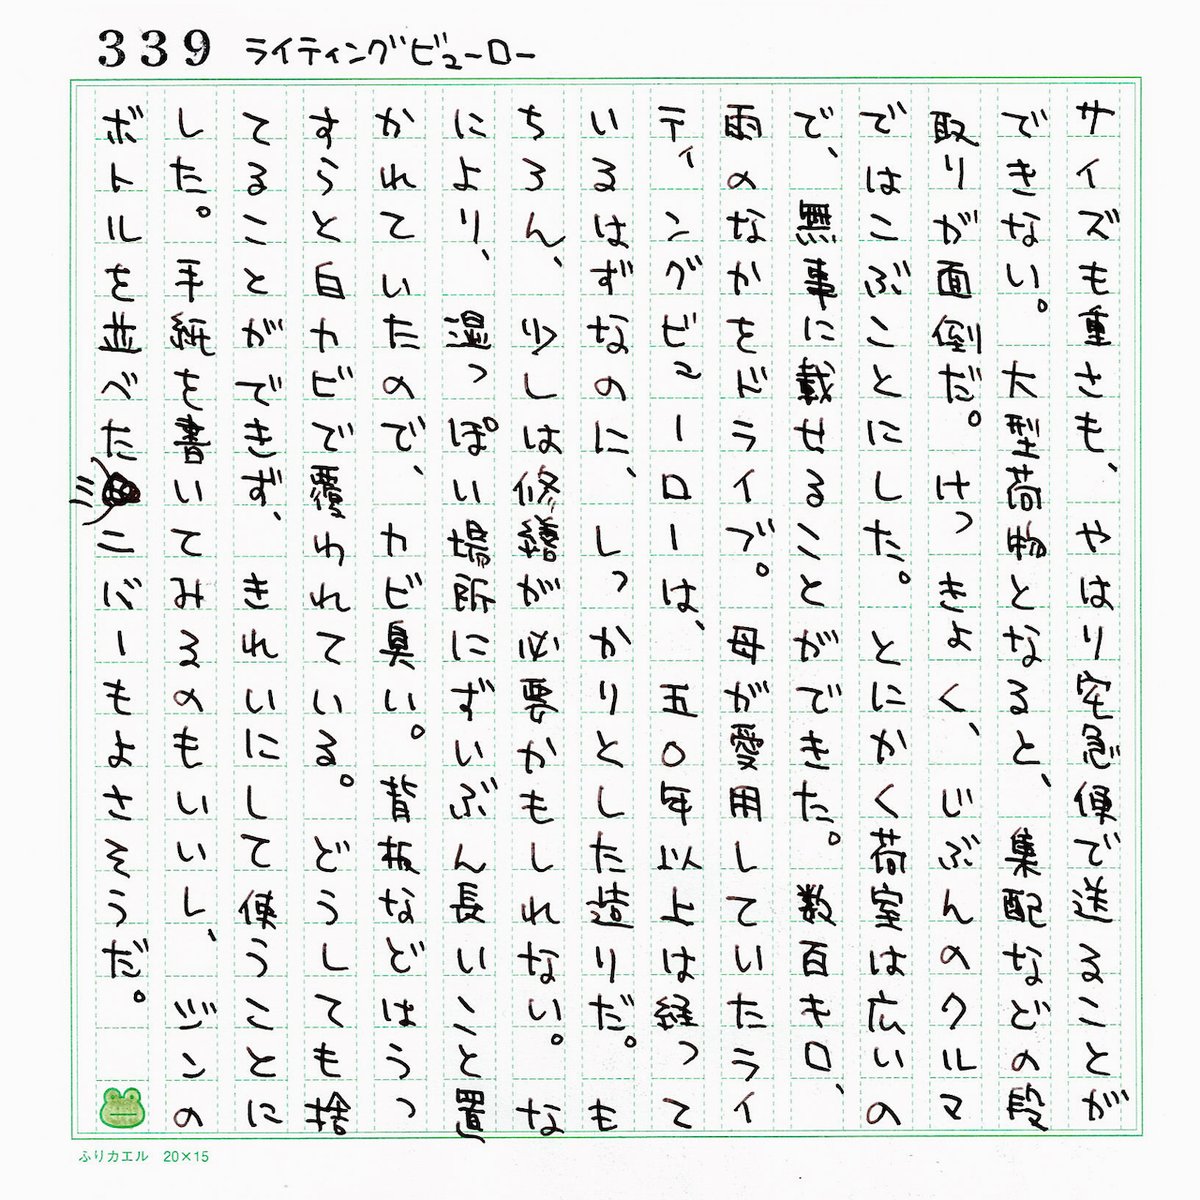 339 ライティングビューロー
サイズも重さも、やはり宅急便で送ることが
できない。大型荷物となると、集配などの段
取りが面倒だ。けっきょく、じぶんのクルマ
ではこぶことにした。とにかく荷室は広いの
で、無事に載せることができた。数百キロ、
雨のなかをドライブ。母が愛用していたライ
ティングビューローは、五〇年以上は経って
いるはずなのに、しっかりとした造りだ。も
ちろん、少しは修繕が必要かもしれない。な
により、湿っぽい場所にずいぶん長いこと置
かれていたので、カビ臭い。背板などはうっ
すらと白カビで覆われている。どうしても捨
てることができず、きれいにして使うことに
した。手紙を書いてみるのもいいし、ジンの
ボトルを並べたニバーもよさそうだ。
ふりカエル 20×15